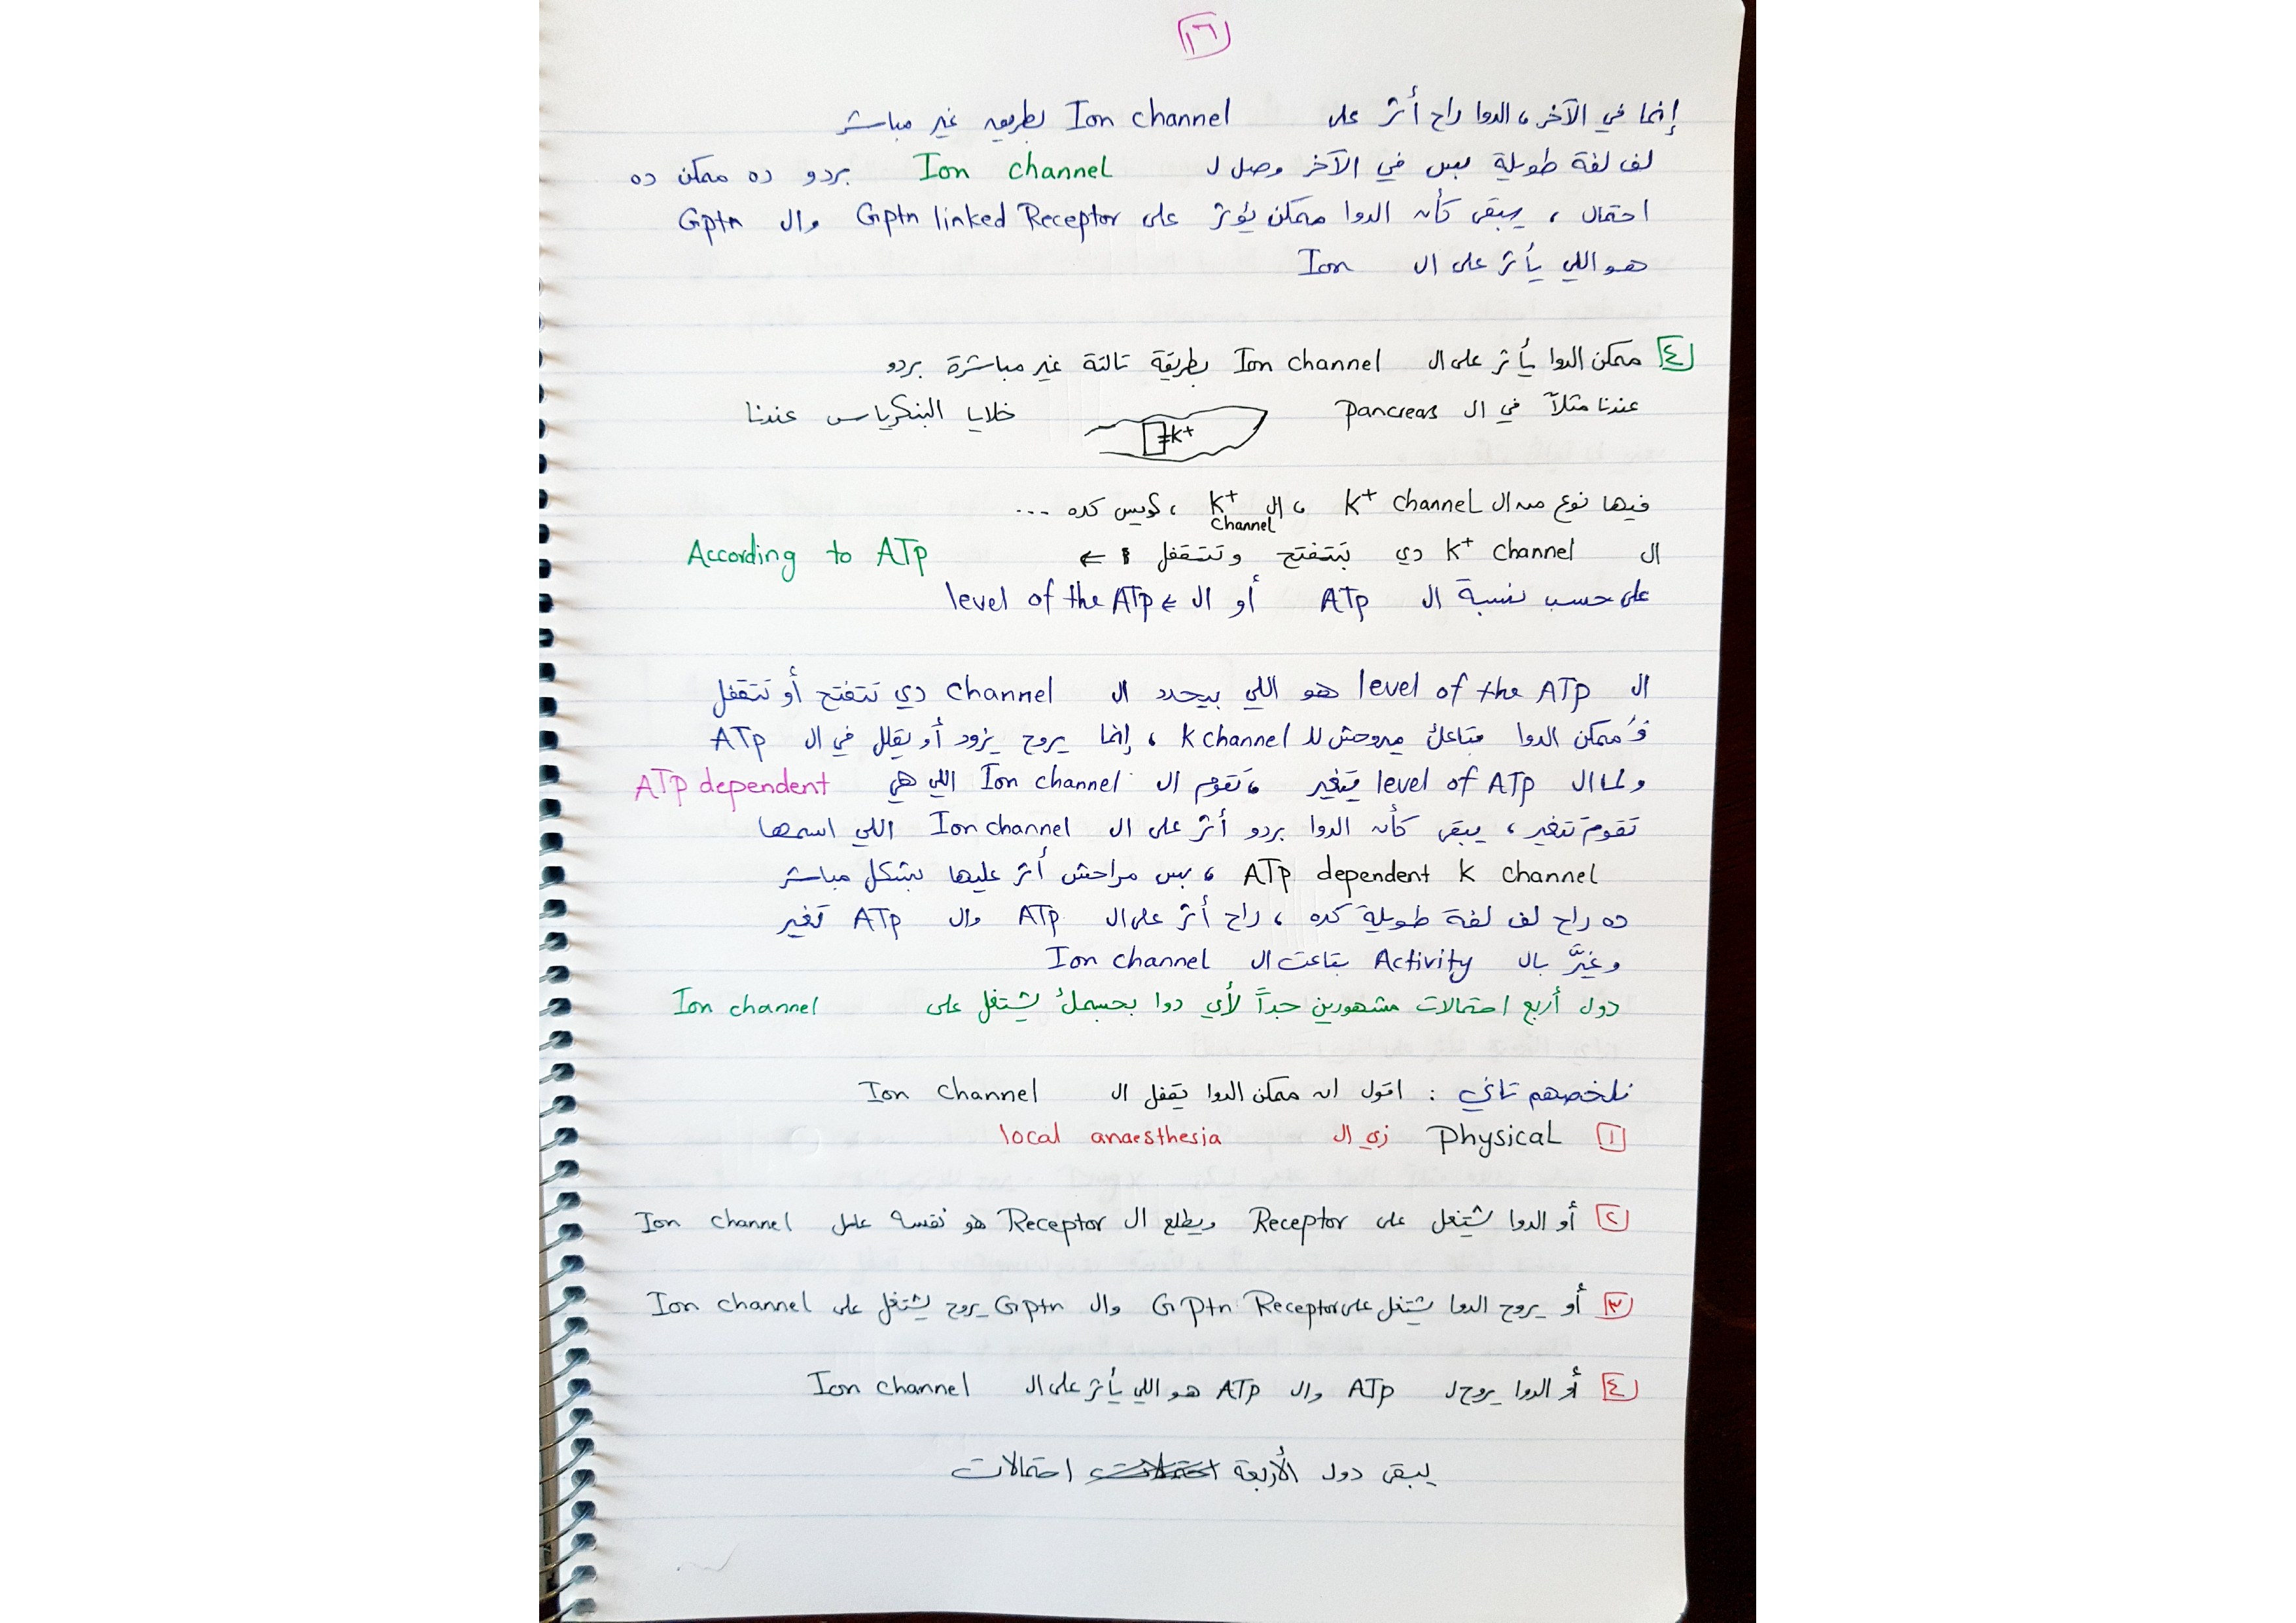 ١٦
إنما في الآخر، الدوا راح أثر على Ion channel بطريقه غير مباشر
لف لفة طويلة بس في الآخر وصل ل Ion channel بردو ده ممكن ده
احتمال، يبقى كأن الدوا ممكن يؤثر على Gptn linked Receptor وال Gptn
هو اللي يأثر على ال Ion
٤ ممكن الدوا يأثر على ال Ion channel بطريقة تالتة غير مباشرة بردو
عندنا مثلاً في ال pancreas خلايا البنكرياس عندنا
K+
فيها نوع من ال K+ channel ، ال K+ channel ، كويس كده ...
ال K+ channel دي بتتفتح وتتقفل ← According to ATP
على حسب نسبة ال ATP أو ال ← level of the ATP
ال level of the ATP هو اللي بيحدد ال channel دي تتفتح أو تتقفل
فَممكن الدوا بتاعك ميروحش لل k channel ، إنما يروح يزود أو يقلل في ال ATP
ولما ال level of ATP يتغير ، تقوم ال Ion channel اللي هي ATP dependent
تقوم تتغير، يبقى كأن الدوا بردو أثر على ال Ion channel اللي اسمها
ATP dependent K channel ، بس مراحش أثر عليها بشكل مباشر
ده راح لف لفة طويلة كده ، راح أثر على ال ATP وال ATP تغير
وغيَّر بال Activity بتاعت ال Ion channel
دول أربع احتمالات مشهورين جداً لأي دوا بجسمك يشتغل على Ion channel
نلخصهم تاني : اقول ان ممكن الدوا يقفل ال Ion channel
١ physical زي ال local anaesthesia
٢ أو الدوا يشتغل على Receptor ويطلع ال Receptor هو نفسه عامل Ion channel
٣ أو يروح الدوا يشتغل على G Ptn Receptor وال Gptn يروح يشتغل على Ion channel
٤ أو الدوا يروح ل ATP وال ATP هو اللي يأثر على ال Ion channel
يبقى دول الأربعة احتمالات